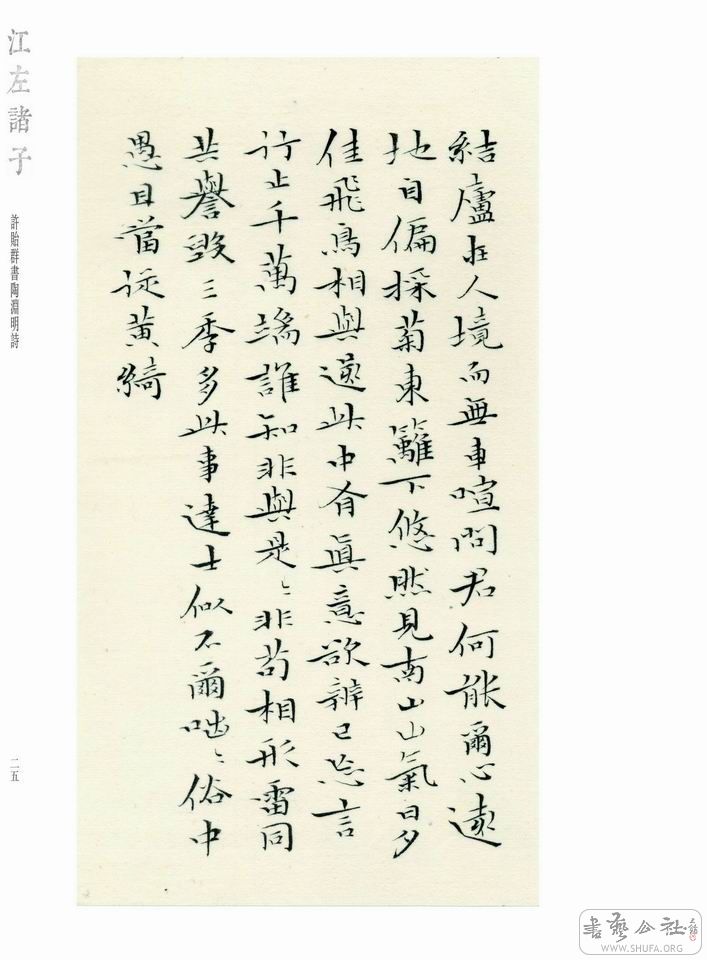 江左諸子
許貽群書陶淵明詩
二五
結廬在人境而無車喧問君何能爾心遠
地自偏採菊東籬下悠然見南山山氣日夕
佳飛鳥相與還此中有真意欲辨已忘言
行止千萬端誰知非與是〻非苟相形雷同
共譽毀三季多此事達士似不爾咄〻俗中
愚且當從黃綺
書藝公社
WWW.SHUFA.ORG